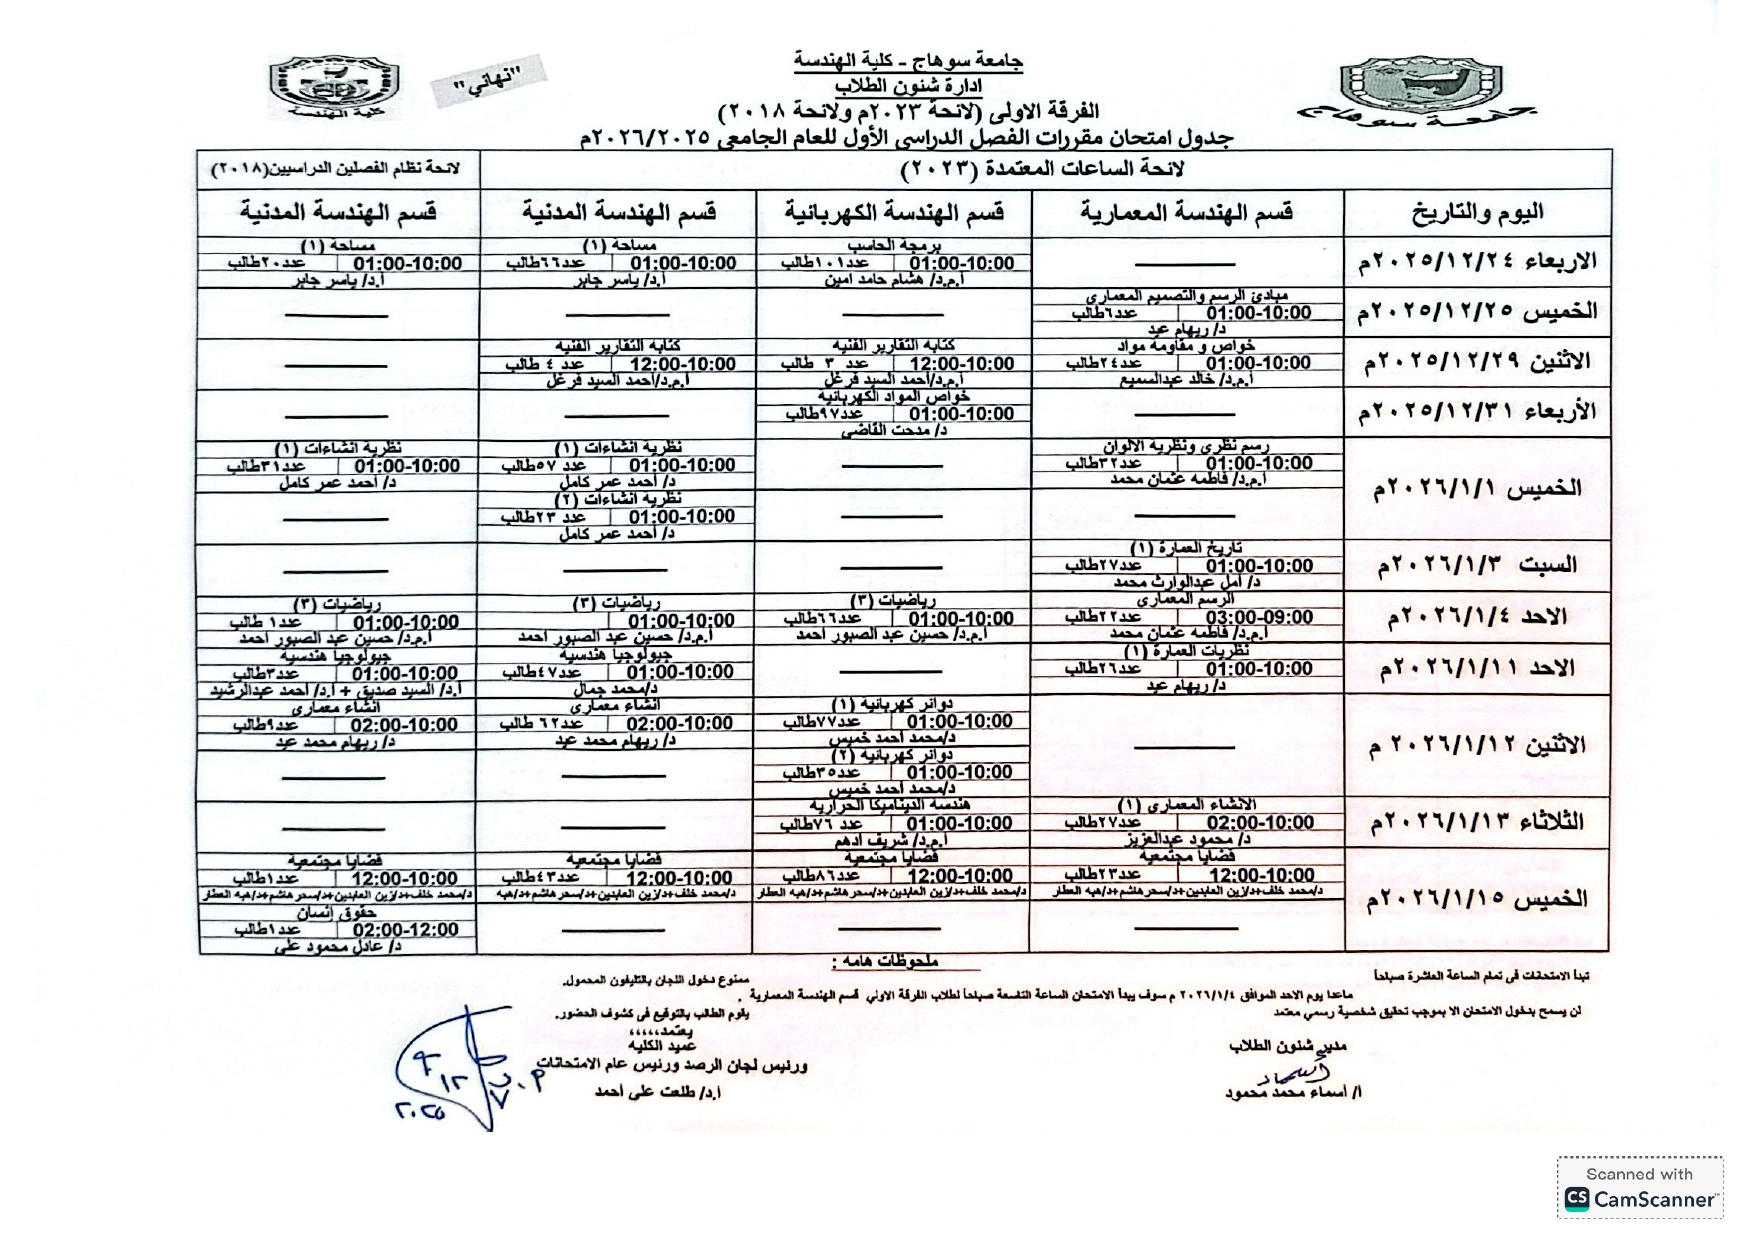 جامعة سوهاج - كلية الهندسة
ادارة شئون الطلاب
"نهائي"
كلية الهندسة
جامعة سوهاج
الفرقة الاولى (لائحة ٢٠٢٣م ولائحة ٢٠١٨)
جدول امتحان مقررات الفصل الدراسى الأول للعام الجامعى ٢٠٢٦/٢٠٢٥م
لائحة الساعات المعتمدة (٢٠٢٣)
لائحة نظام الفصلين الدراسيين(٢٠١٨)
اليوم والتاريخ
قسم الهندسة المعمارية
قسم الهندسة الكهربائية
قسم الهندسة المدنية
قسم الهندسة المدنية
الاربعاء ٢٠٢٥/١٢/٢٤م
برمجة الحاسب
01:00-10:00 عدد١٠١طالب
أ.م.د/ هشام حامد امين
مساحة (١)
01:00-10:00 عدد٦٦طالب
أ.د/ ياسر جابر
مساحة (١)
01:00-10:00 عدد٢٠طالب
أ.د/ ياسر جابر
الخميس ٢٠٢٥/١٢/٢٥م
مبادئ الرسم والتصميم المعمارى
01:00-10:00 عدد٦طالب
د/ ريهام عيد
الاثنين ٢٠٢٥/١٢/٢٩م
خواص و مقاومة مواد
01:00-10:00 عدد٢٤طالب
أ.م.د/ خالد عبدالسميع
كتابه التقارير الفنيه
12:00-10:00 عدد ٣ طالب
أ.م.د/أحمد السيد فرغل
كتابه التقارير الفنيه
12:00-10:00 عدد ٤ طالب
أ.م.د/أحمد السيد فرغل
الأربعاء ٢٠٢٥/١٢/٣١م
خواص المواد الكهربائية
01:00-10:00 عدد٩٧طالب
د/ مدحت القاضى
الخميس ٢٠٢٦/١/١م
رسم نظرى ونظريه الالوان
01:00-10:00 عدد٣٢طالب
أ.م.د/ فاطمه عثمان محمد
نظرية انشاءات (١)
01:00-10:00 عدد ٥٧طالب
د/ أحمد عمر كامل
نظرية انشاءات (١)
01:00-10:00 عدد٣١طالب
د/ أحمد عمر كامل
نظريه انشاءات (٢)
01:00-10:00 عدد ٢٣طالب
د/ أحمد عمر كامل
السبت ٢٠٢٦/١/٣م
تاريخ العمارة (١)
01:00-10:00 عدد٢٧طالب
د/ أمل عبدالوارث محمد
الاحد ٢٠٢٦/١/٤م
الرسم المعمارى
03:00-09:00 عدد٢٢طالب
أ.م.د/ فاطمه عثمان محمد
رياضيات (٣)
01:00-10:00 عدد٦٦طالب
أ.م.د/ حسين عبد الصبور احمد
رياضيات (٣)
01:00-10:00
أ.م.د/ حسين عبد الصبور احمد
رياضيات (٣)
01:00-10:00 عدد١ طالب
أ.م.د/ حسين عبد الصبور احمد
الاحد ٢٠٢٦/١/١١م
نظريات العمارة (١)
01:00-10:00 عدد٢٦طالب
د/ ريهام عيد
جيولوجيا هندسية
01:00-10:00 عدد٤٧طالب
د/محمد جمال
جيولوجيا هندسيه
01:00-10:00 عدد٣طالب
أ.د/ السيد صديق + أ.د/ احمد عبدالرشيد
الاثنين ٢٠٢٦/١/١٢ م
دوائر كهربائية (١)
01:00-10:00 عدد٧٧طالب
د/محمد أحمد خميس
انشاء معمارى
02:00-10:00 عدد٦٢ طالب
د/ ريهام محمد عيد
انشاء معمارى
02:00-10:00 عدد٩طالب
د/ ريهام محمد عيد
دوائر كهربائية (٢)
01:00-10:00 عدد٣٥طالب
د/محمد أحمد خميس
الثلاثاء ٢٠٢٦/١/١٣م
الانشاء المعمارى (١)
02:00-10:00 عدد٢٧طالب
د/ محمود عبدالعزيز
هندسة الديناميكا الحرارية
01:00-10:00 عدد ٧٦طالب
أ.م.د/ شريف أدهم
الخميس ٢٠٢٦/١/١٥م
قضايا مجتمعية
12:00-10:00 عدد٢٣طالب
د/محمد خلف+د/زين العابدين+د/سحر هاشم+د/هبه العطار
قضايا مجتمعية
12:00-10:00 عدد٨٦طالب
د/محمد خلف+د/زين العابدين+د/سحر هاشم+د/هبه العطار
قضايا مجتمعية
12:00-10:00 عدد٤٣طالب
د/محمد خلف+د/زين العابدين+د/سحر هاشم+د/هبه
قضايا مجتمعية
12:00-10:00 عدد١طالب
د/محمد خلف+د/زين العابدين+د/سحر هاشم+د/هبه العطار
حقوق إنسان
02:00-12:00 عدد١طالب
د/ عادل محمود على
ملحوظات هامه :
تبدأ الامتحانات فى تمام الساعة العاشرة صباحاً
ممنوع دخول اللجان بالتليفون المحمول.
ماعدا يوم الاحد الموافق ٢٠٢٦/١/٤ م سوف يبدأ الامتحان الساعة التاسعة صباحاً لطلاب الفرقة الاولي قسم الهندسة المعمارية .
لن يسمح بدخول الامتحان الا بموجب تحقيق شخصية رسمي معتمد
يقوم الطالب بالتوقيع فى كشوف الحضور.
يعتمد،،،،،
عميد الكليه
مدير شئون الطلاب
ورئيس لجان الرصد ورئيس عام الامتحانات
أ/ أسماء محمد محمود
أ.د/ طلعت على أحمد
Scanned with
CS CamScanner